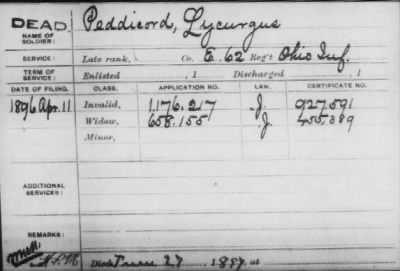 DEAD.
NAME OF SOLDIER:
Peddicord, Lycurgus
SERVICE:
Late rank, Co. E. 62 Reg't Ohio Inf.
TERM OF SERVICE:
Enlisted , 1 Discharged , 1
DATE OF FILING. CLASS. APPLICATION NO. LAW. CERTIFICATE NO.
1896 Apr. 11 Invalid, 1,176.217 J. 927.591
Widow, 658.155 J 455.389
Minor,
ADDITIONAL SERVICES:
REMARKS:
Died 27 1897 at